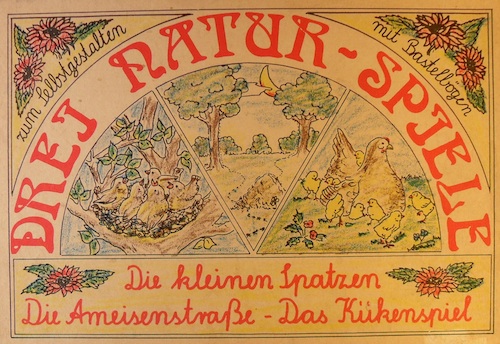 zum Selbstgestalten
DREI NATUR-SPIELE
mit Bastelbogen
Die kleinen Spatzen
Die Ameisenstraße - Das Kükenspiel